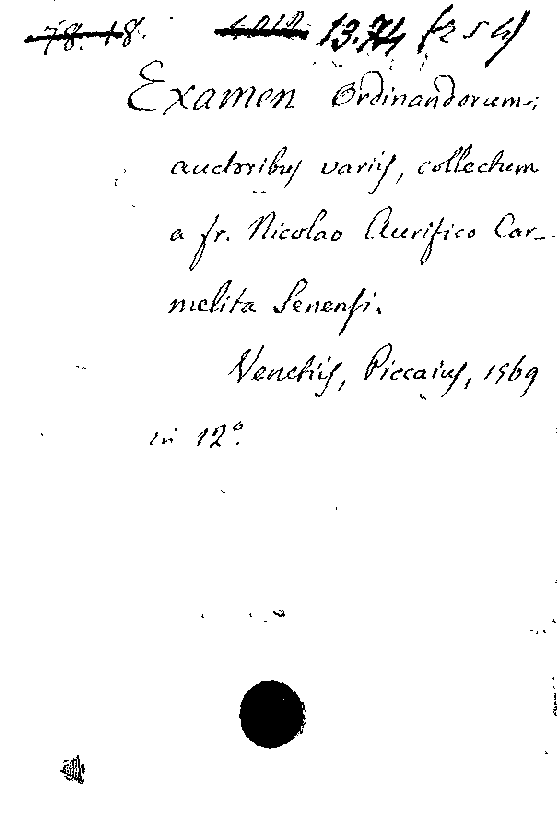 78. 18. 13.74 (2 s 4)
Examen Ordinandorum;
auctoribus variis, collectum
a fr. Nicolao Aurifico Car-
melita Senensi.
Venetiis, Piccaius, 1569
in 12°.